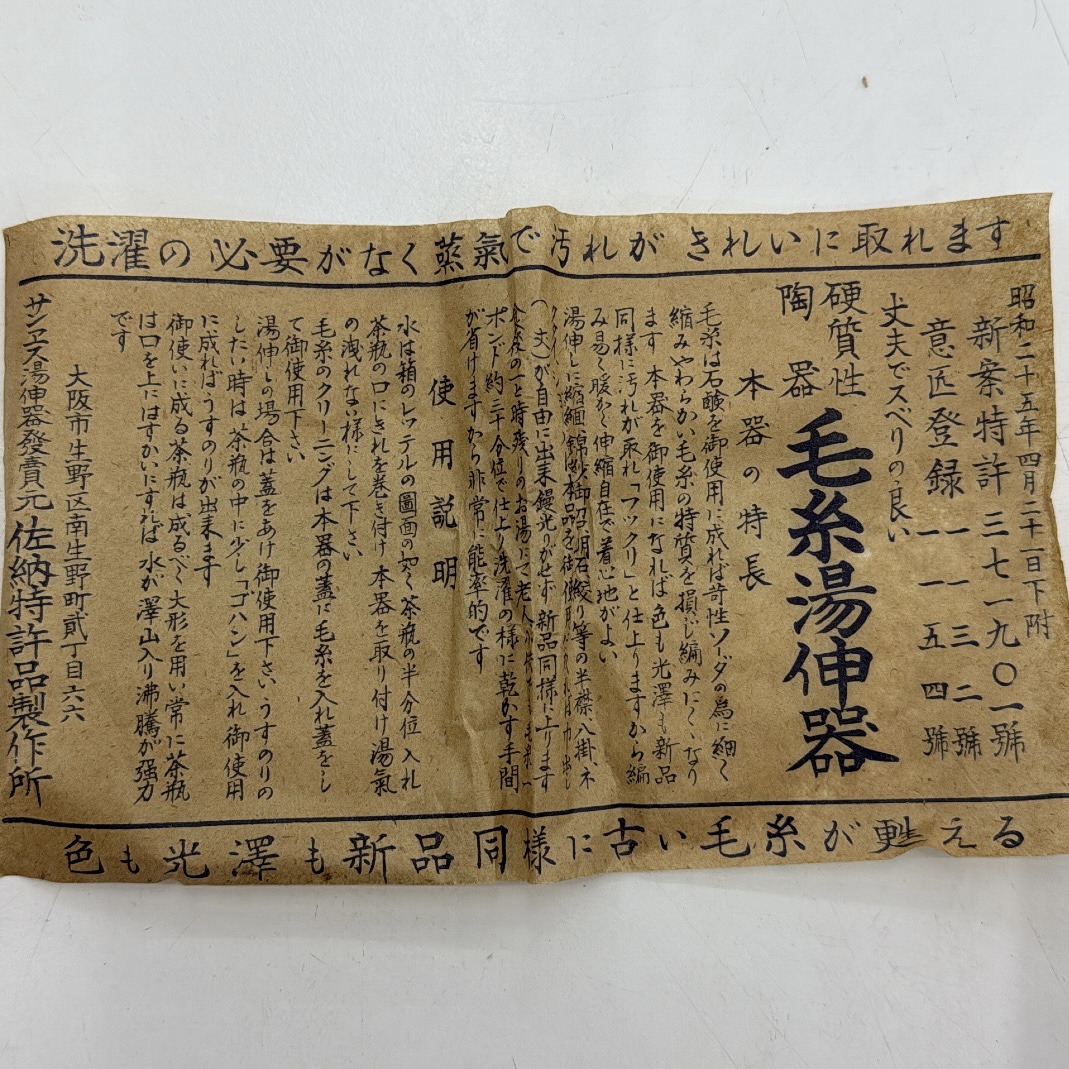 洗濯の必要がなく蒸氣で汚れがきれいに取れます
昭和二十五年四月二十一日下附
新案特許三七一九〇一號
意匠登録一一三二號
一一五四號
丈夫でスベリの良い
硬質性
陶器
毛糸湯伸器
本器の特長
毛糸は石鹸を御使用に成れば苛性ソーダの為に細く
縮みやわらかい毛糸の特質を損じ編みにくくなり
ます 本器を御使用になれば色も光澤も新品
同様に汚れが取れ「フックリ」と仕上りますから編
み易く暖かく伸縮自在で着心地がよい
湯伸しに縮緬錦紗御召明石絞り等の半襟八掛ネ
(丈)が自由に出来鏝光りがせず新品同様に上ります
食後の一と時残りのお湯にて老人
ポンド約三十分位で仕上り洗濯の様に乾かす手間
が省けますから非常に能率的です
使用説明
水は箱のレッテルの圖面の如く茶瓶の半分位入れ
茶瓶の口にきれを巻き付け本器を取り付け湯氣
の洩れない様にして下さい
毛糸のクリーニングは本器の蓋に毛糸を入れ蓋をし
て御使用下さい
湯伸しの場合は蓋をあけ御使用下さいうすのりの
したい時は茶瓶の中に少し「ゴハン」を入れ御使用
に成ればうすのりが出来ます
御使いに成る茶瓶は成るべく大形を用い常に茶瓶
は口を上にはすかいにすれば水が澤山入り沸騰が强力
です
大阪市生野区南生野町貳丁目六六
サンエス湯伸器發賣元佐納特許品製作所
色も光澤も新品同様に古い毛糸が甦える